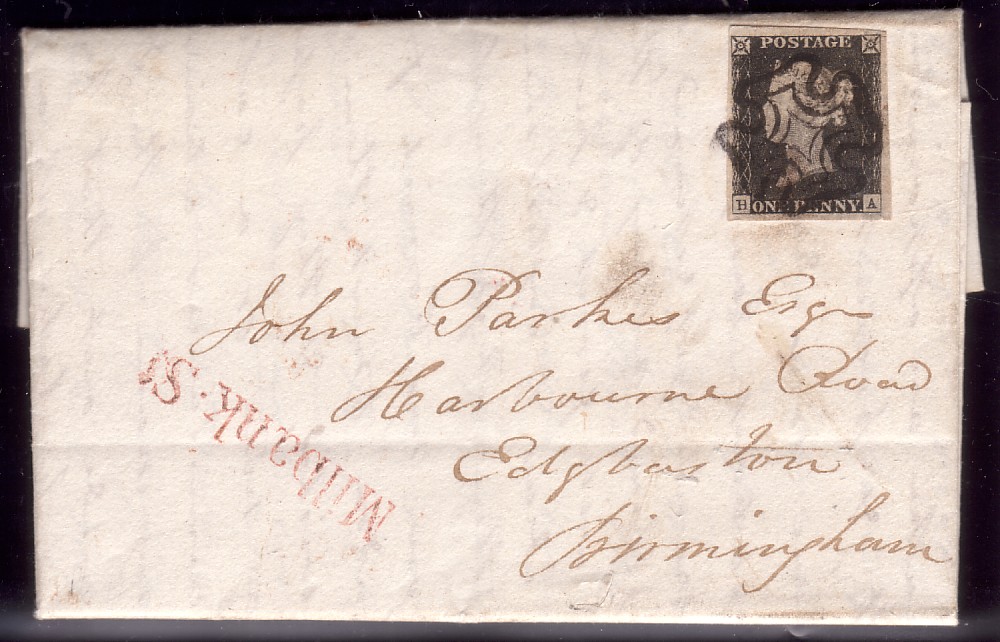 POSTAGE
H ONE PENNY A
John Parkes Esqr
Harbourne Road
Edgbaston
Birmingham
Milbank. St